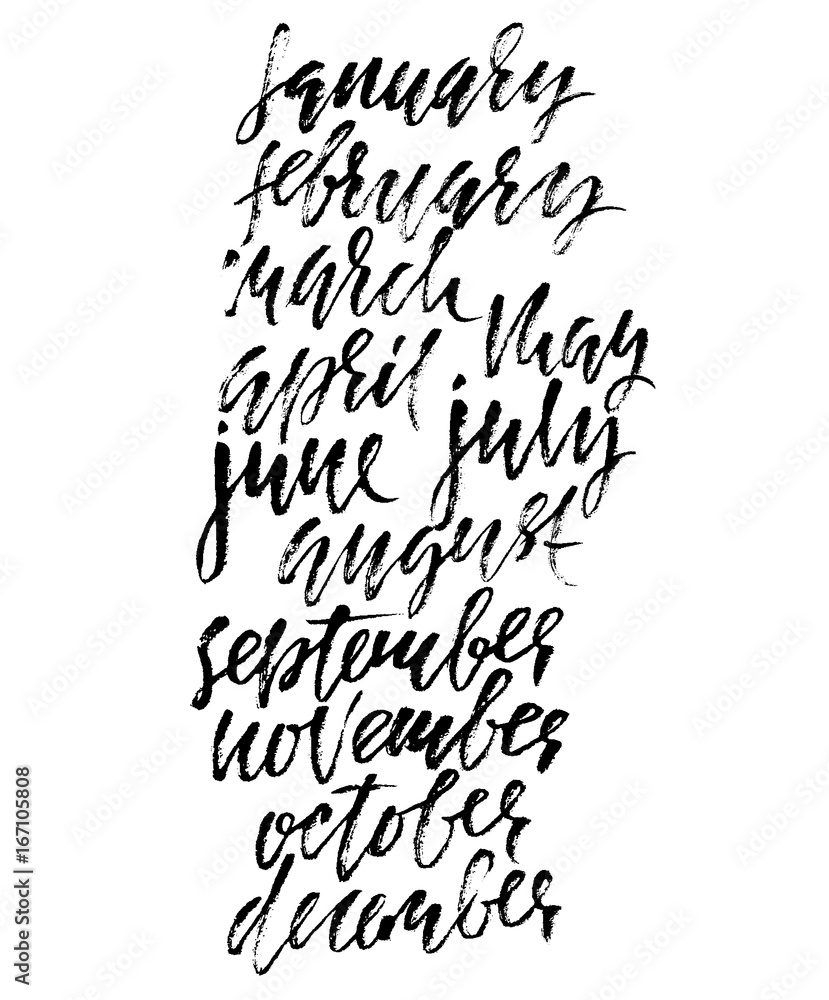 january
february
march
april may
june july
august
september
november
october
december
Adobe Stock | #167105808